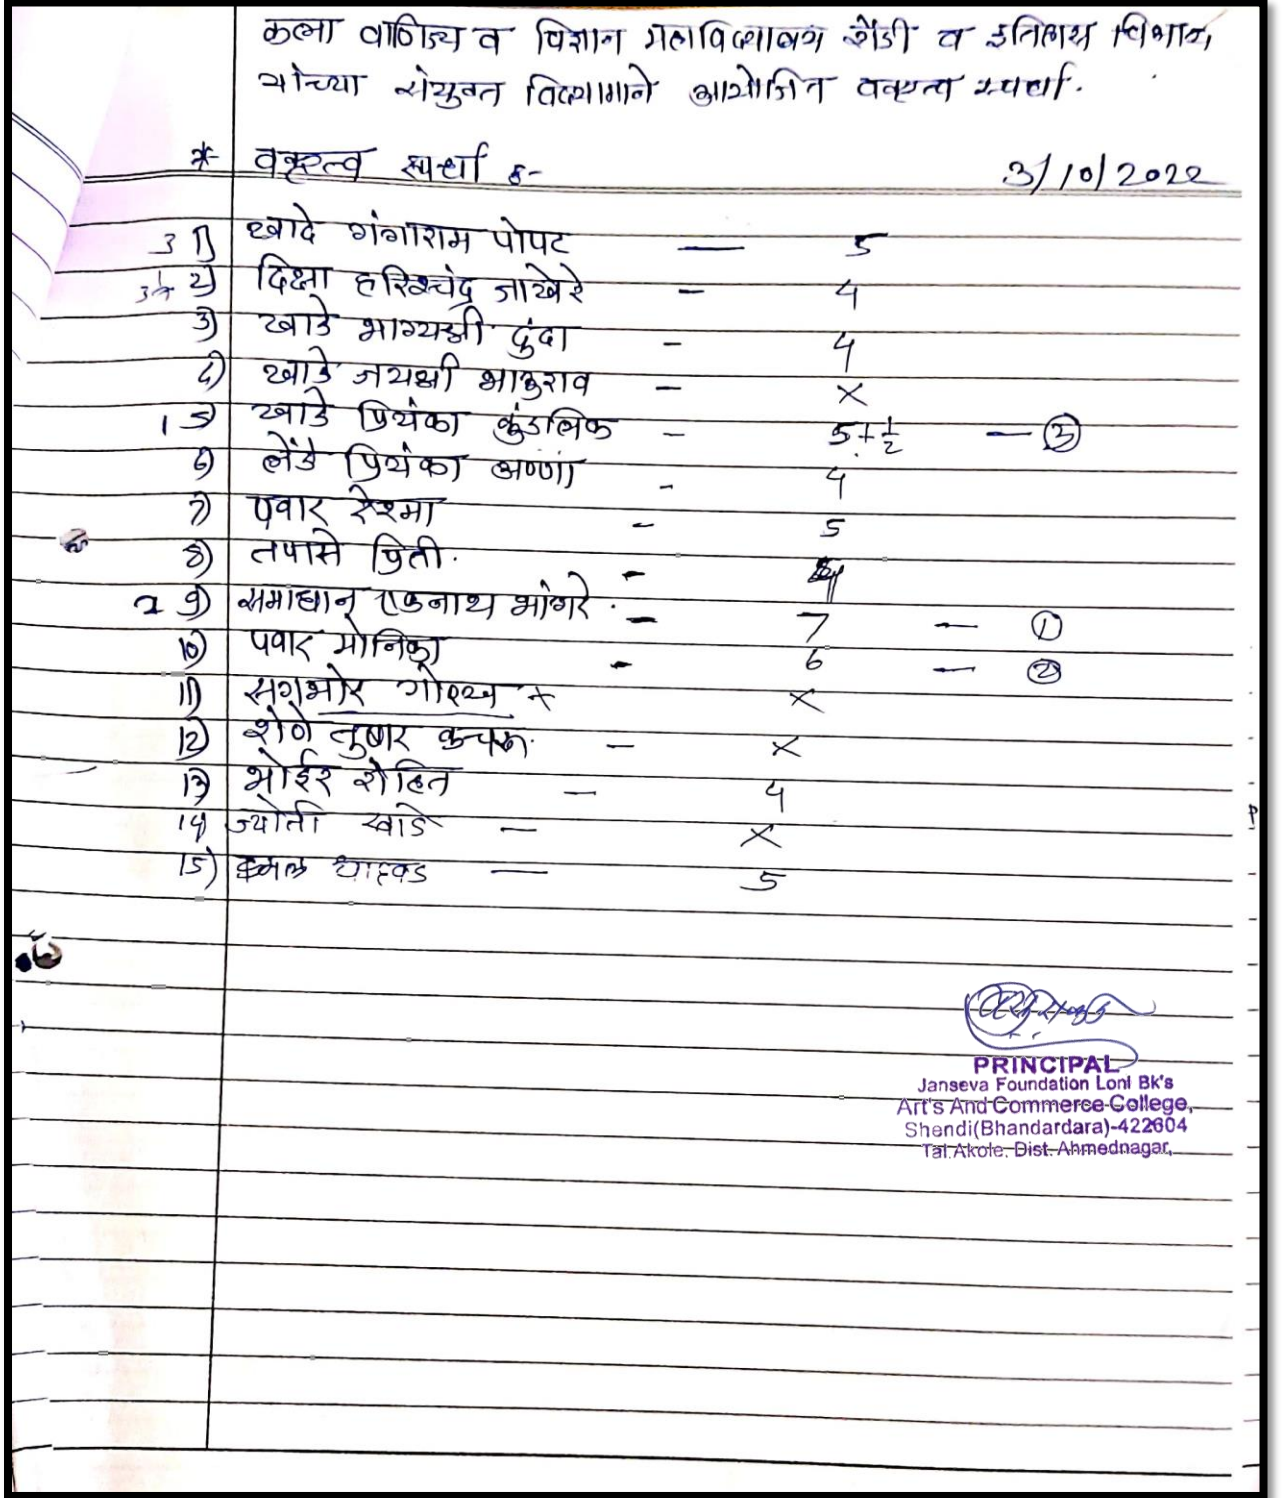 कला वाणिज्य व विज्ञान महाविद्यालय शेंडी व इतिहास विभाग,
यांच्या संयुक्त विद्यमाने आयोजित वक्तृत्व स्पर्धा.
* वक्तृत्व स्पर्धा :- 3/10/2022
3 1) खादे गंगाराम पोपट — 5
2) दिक्षा हरिश्चंद्र जाखेरे - 4
3) खाडे भाग्यश्री दुंदा - 4
4) खाडे जयश्री भाऊराव - ×
1 5) खाडे प्रियंका कुंडलिक - 5+½ — ③
6) लेंडे प्रियंका अण्णा - 4
7) पवार रेश्मा - 5
8) तपासे प्रिती. - 4
2 9) समाधान एकनाथ भांगरे. - 7 — ①
10) पवार मोनिका - 6 — ②
11) सगभोर गोरख × ×
12) शेणे तुषार कचरू. - ×
13) भोईर रोहित — 4
14) ज्योती खाडे — ×
15) — 5
PRINCIPAL
Janseva Foundation Loni Bk's
Art's And Commerce College,
Shendi(Bhandardara)-422604
Tal.Akole, Dist. Ahmednagar,